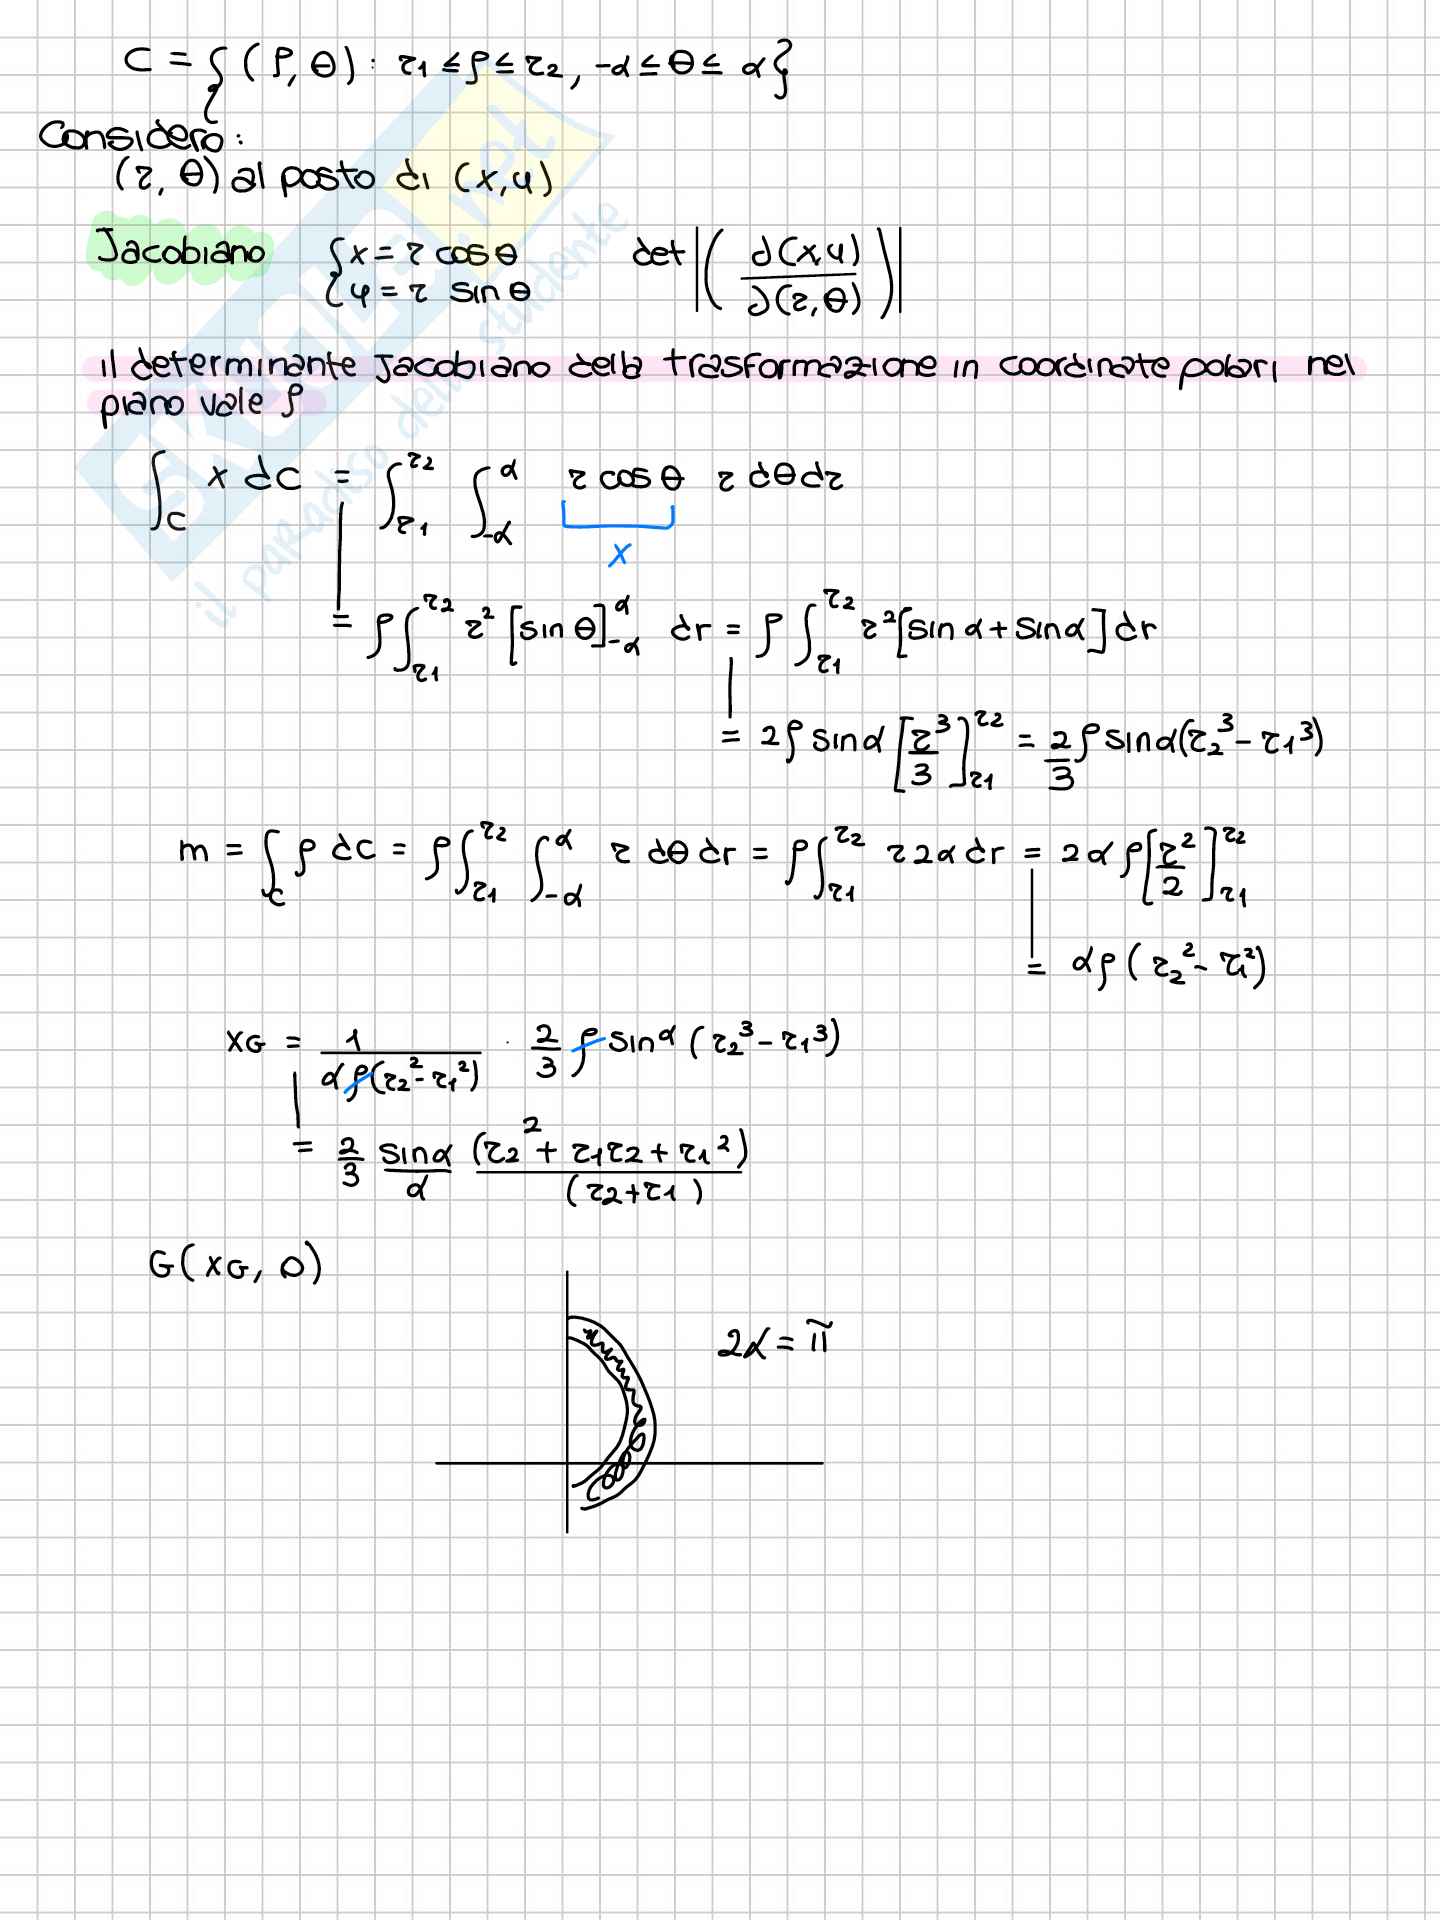 C = {(ρ, θ) : r1 ≤ ρ ≤ r2, -α ≤ θ ≤ α}
Considero:
(r, θ) al posto di (x,y)
Jacobiano {x = r cos θ det |( ∂(x,y) / ∂(r,θ) )|
{y = r sin θ
il determinante Jacobiano della trasformazione in coordinate polari nel
piano vale ρ
∫_C x dC = ∫_r1^r2 ∫_-α^α r cos θ r dθ dr
x
= ρ ∫_r1^r2 r² [sin θ]_-α^α dr = ρ ∫_r1^r2 r² [sin α + sin α] dr
= 2ρ sin α [r³/3]_r1^r2 = 2/3 ρ sin α (r2³ - r1³)
m = ∫_C ρ dC = ρ ∫_r1^r2 ∫_-α^α r dθ dr = ρ ∫_r1^r2 r 2α dr = 2αρ [r²/2]_r1^r2
= αρ (r2² - r1²)
xG = 1 / αρ(r2² - r1²) · 2/3 ρ sin α (r2³ - r1³)
= 2/3 sin α / α (r2² + r1r2 + r1²) / (r2 + r1)
G(xG, 0)
2α = π
skuola.net
il paradiso dello studente